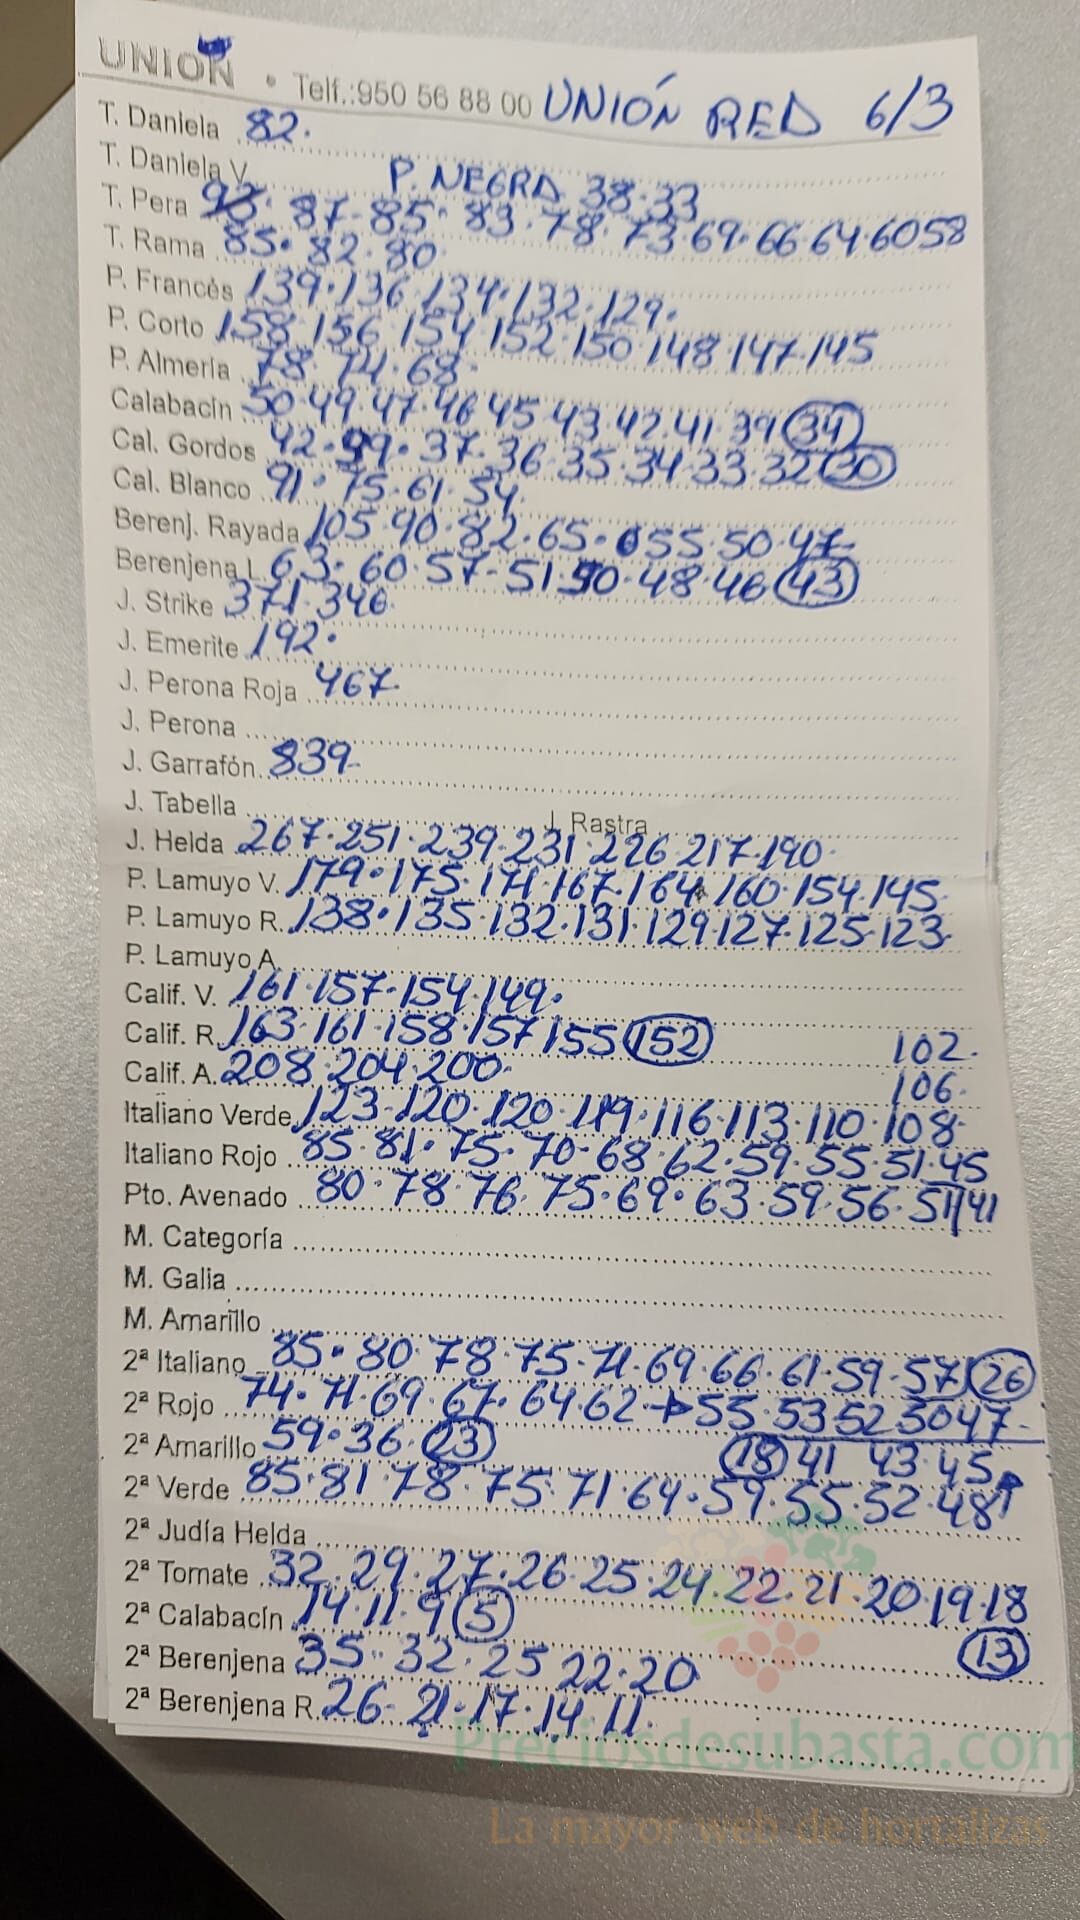 UNION • Telf.:950 56 88 00 UNIÓN RED 6/3
T. Daniela 82.
T. Daniela V. P. NEGRA 38.33
T. Pera 93. 87.85.83.78.73.69.66.64.60 58
T. Rama 85.82.80
P. Francés 139.136.134.132.129.
P. Corto 158.156.154.152.150.148.147.145
P. Almería 78.74.68.
Calabacín 50.49.47.46 45.43.42.41.39 34
Cal. Gordos 42.39.37.36.35.34.33.32 30
Cal. Blanco 91.75.61.54.
Berenj. Rayada 105.90.82.65.55.50.47
Berenjena L 63.60.57.51 50.48.46 43
J. Strike 371.346.
J. Emerite 192.
J. Perona Roja 467.
J. Perona
J. Garrafón 839.
J. Tabella J. Rastra
J. Helda 267.251.239.231.226.217.190.
P. Lamuyo V. 179.175.171.167.164.160.154.145.
P. Lamuyo R. 138.135.132.131.129.127.125.123.
P. Lamuyo A.
Calif. V. 161.157.154.149.
Calif. R. 163.161.158.157 155 152 102.
Calif. A. 208.204.200. 106.
Italiano Verde 123.120.120.119.116.113.110.108.
Italiano Rojo 85.81.75.70.68.62.59.55.51.45
Pto. Avenado 80.78.76.75.69.63.59.56.51 41
M. Categoría
M. Galia
M. Amarillo
2ª Italiano 85.80.78.75.71.69.66.61.59.57 26
2ª Rojo 74.71.69.67.64.62 → 55.53 52 50 47
2ª Amarillo 59.36.23 18 41 43.45
2ª Verde 85.81.78.75.71.64.59.55.52.48
2ª Judía Helda
2ª Tomate 32.29.27.26.25.24.22.21.20.19.18
2ª Calabacín 14.11.9 5 13
2ª Berenjena 35.32.25 22.20
2ª Berenjena R. 26.21.17.14.11.
Preciosdesubasta.com
La mayor web de hortalizas